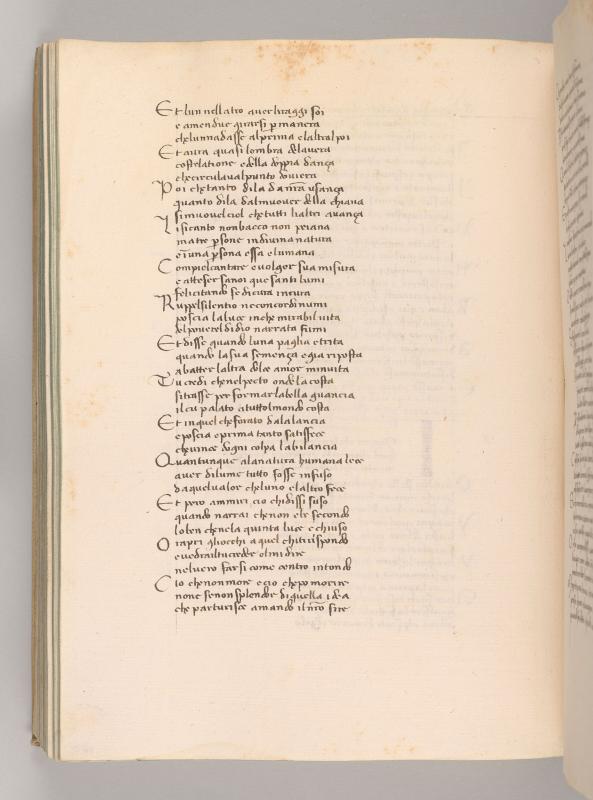 Et lun nellatro auer liraggi soi
e amendue girarsi p manera
chellunnadasse alprima elaltral poi
Et aura quasi lombra delauera
costelatione e della doppia dança
checirculaualpunto doviera
Poi chetanto dila danr̄a usança
quanto dila dalmuouer della chiana
Isimuouelciel chetutti lialtri auança
Lisicanto nonbacco non peiana
ma tre psone indiuina natura
e ī una psona essa elumana
Compielcantare euolger sua misura
e atteser anoi que santi lumi
felicitando se dicura incura
Ruppelsilentio neconcordi numi
poscia laluce inche mirabil uita
delpouerel didio narrata fumi
Et disse quando luna paglia etrita
quando lasua semença egia riposta
abatter laltra dolce amor minuita
Tu credi chenelpecto ondelacosta
sitrasse per formar labella guancia
ilcu palato atuttolmondo costa
Et inquel cheforato dalalancia
eposcia eprima tanto satisfece
cheuince dogni colpa labilancia
Quantunque alanatura humana lece
auer dilume tutto fosse infuso
daquelualor cheluno elaltro fece
Et pero ammiri cio chidissi suso
quando narrai chenon ebe secondo
loben chenela quinta luce e chiuso
Or apri gliocchi aquel chitirispondo
euedrailtucredere elmi dire
neluero farsi come centro intondo
Cio chenonmore e cio chepo morire
none senon splendore di quella idea
che parturisce amando ilnr̄o sire